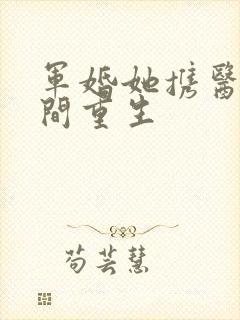 軍婚她携醫
間重生
苟芸慧